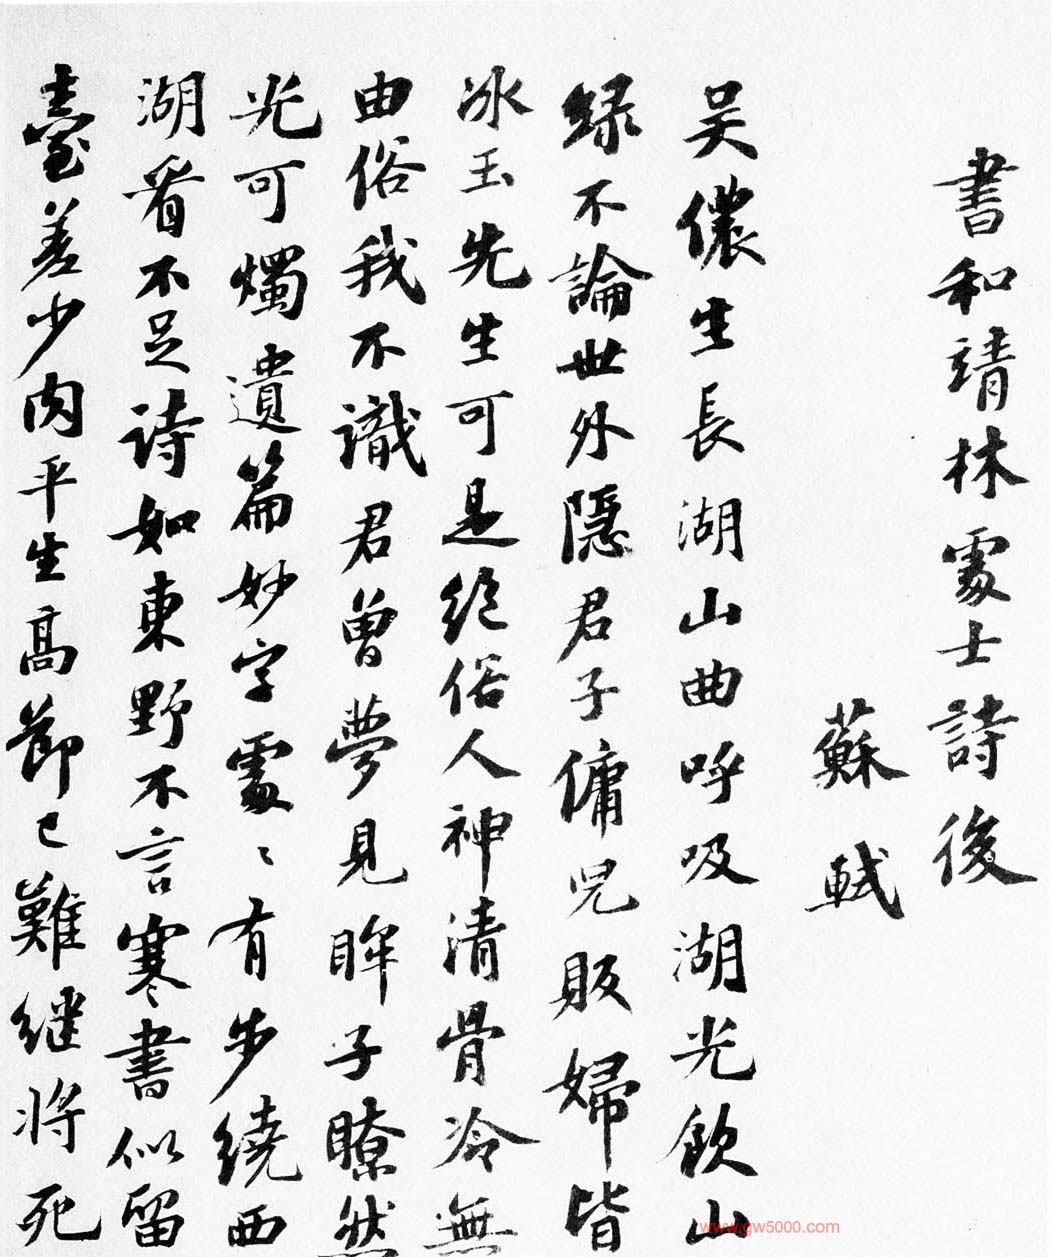 書和靖林處士詩後
蘇軾
吴儂生長湖山曲呼吸湖光飲山
綠不論世外隱君子傭兒販婦皆
冰玉先生可是絶俗人神清骨冷無
由俗我不識君曾夢見眸子瞭然
光可燭遺篇妙字處〻有步繞西
湖看不足詩如東野不言寒書似留
臺差少肉平生高節已難继將死
www.gw5000.com